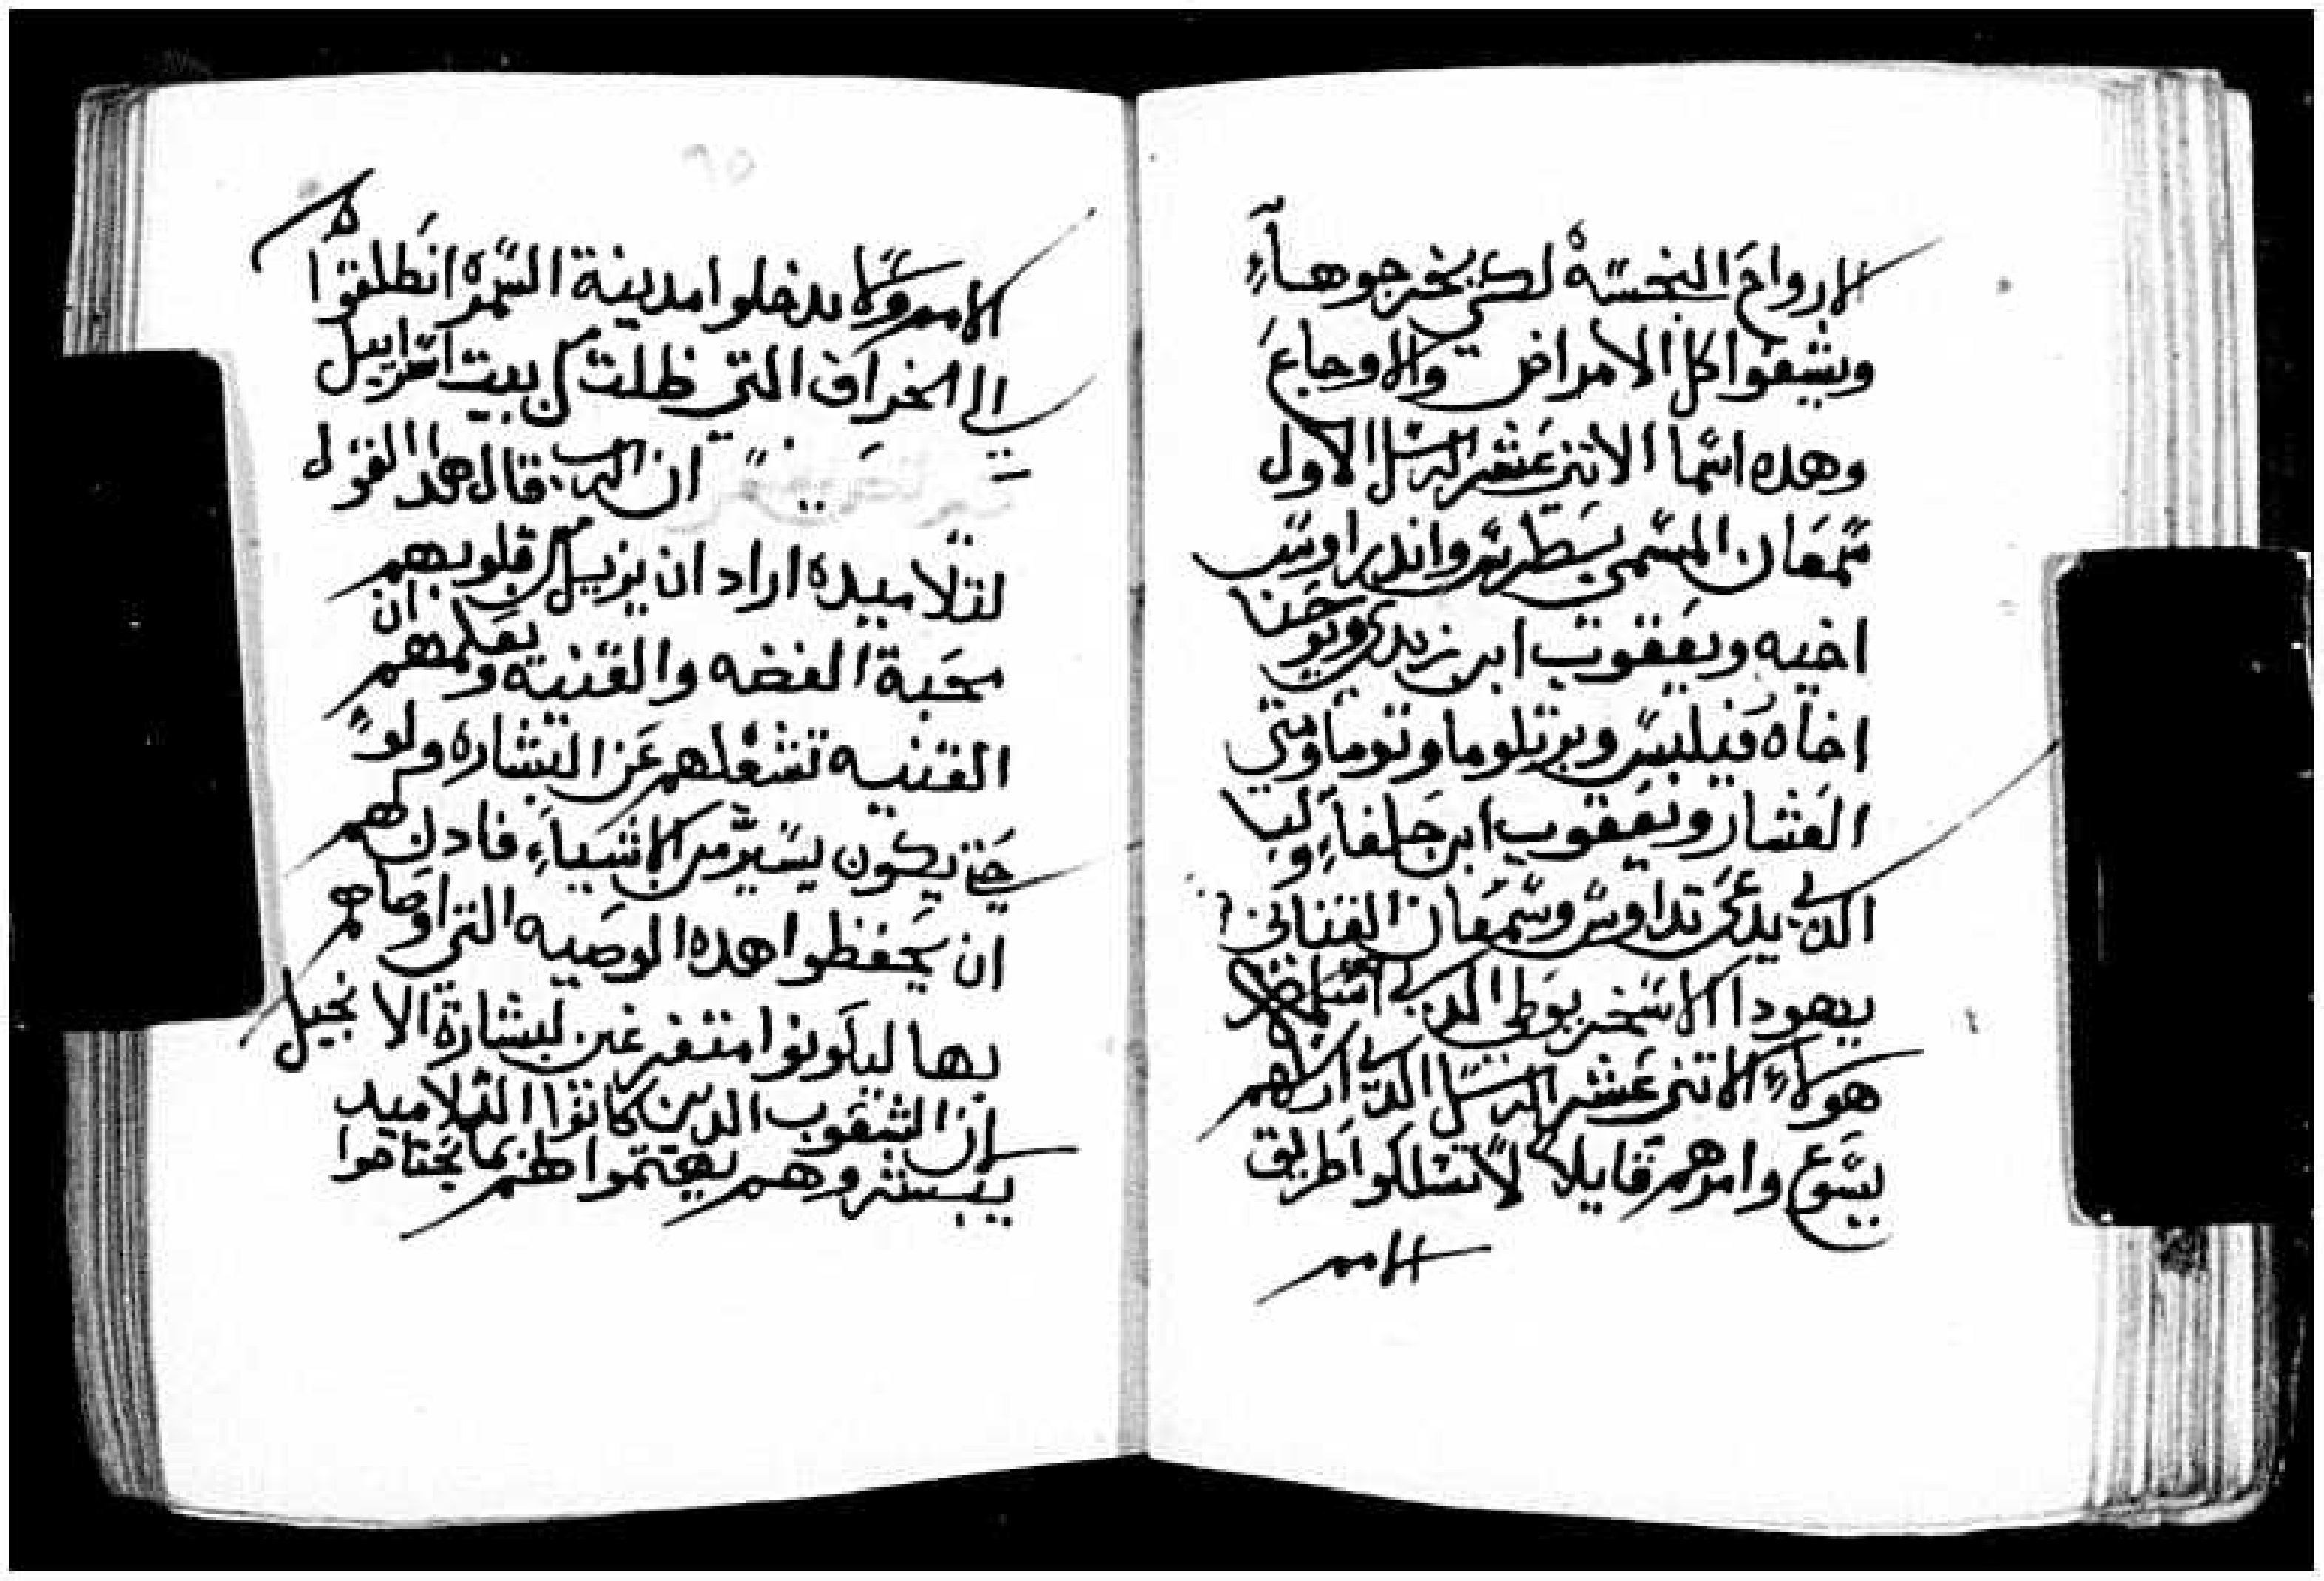 الارواح النجسة لكي يخرجوهاء
ويشفوا كل الامراض والاوجاع
وهده اسما الاتني عشر الرسل الاول
سمعان المسمى بطرس واندراوس
اخيه ويعقوب ابن زبدى ويوحنا
اخاه فيلبس وبرتلوما وتوما ومتى
العشار ويعقوب ابن حلفاء ولبا
الدي يدعى تداوس وسمعان القناني
يهودا الاسخريوطي الدي اسلمه
هولاء الاتني عشر الرسل الدي ارسلهم
يسوع وامرهم قايلا لا تسلكوا طريق
الامم
٦٥
الامم ولا تدخلوا مدينة السمره انطلقوا
الي الخراف التي ظلت من بيت اسراييل
ان الرب قال هدا القول
لتلاميده اراد ان يزيل من قلوبهم
محبة الفضه والقنيه ويعلمهم ان
القنيه تشغلهم عن البشاره ولو
حتى يكون يسير من الاشياء فادن لهم
ان يحفظوا هده الوصيه التي اوصاهم
بها ليكونوا متفرغين لبشارة الانجيل
لان الشعوب الدين كانوا التلاميد
يبشروهم يهتموا لهم بما يحتاجوا